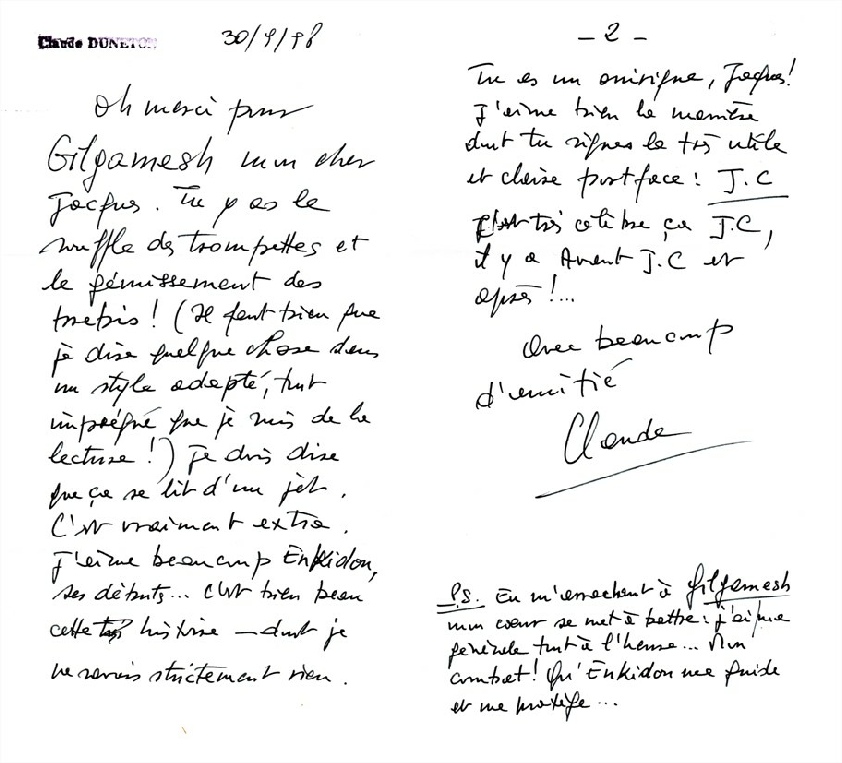 Claude DUNETON
30/9/98
Oh merci pour
Gilgamesh mon cher
Jacques. Tu y as le
souffle des trompettes et
le gémissement des
brebis ! (Il faut bien que
je dise quelque chose dans
un style adapté, tout
imprégné que je suis de la
lecture !) Je dois dire
que ça se lit d'un jet.
C'est vraiment extra.
J'aime beaucoup Enkidou,
ses débuts... C'est bien beau
cette histoire – dont je
ne savais strictement rien.
- 2 -
Tu es un onirique, Jacques !
J'aime bien la manière
dont tu signes la très utile
et claire postface : J.C
C'est très célèbre ça J.C,
il y a Avant J.C et
après !...
Avec beaucoup
d'amitié
Claude
P.S. En m'arrachant à Gilgamesh
mon cœur se met à battre : j'ai une
générale tout à l'heure... Mon
combat ! Qu'Enkidou me guide
et me protège...